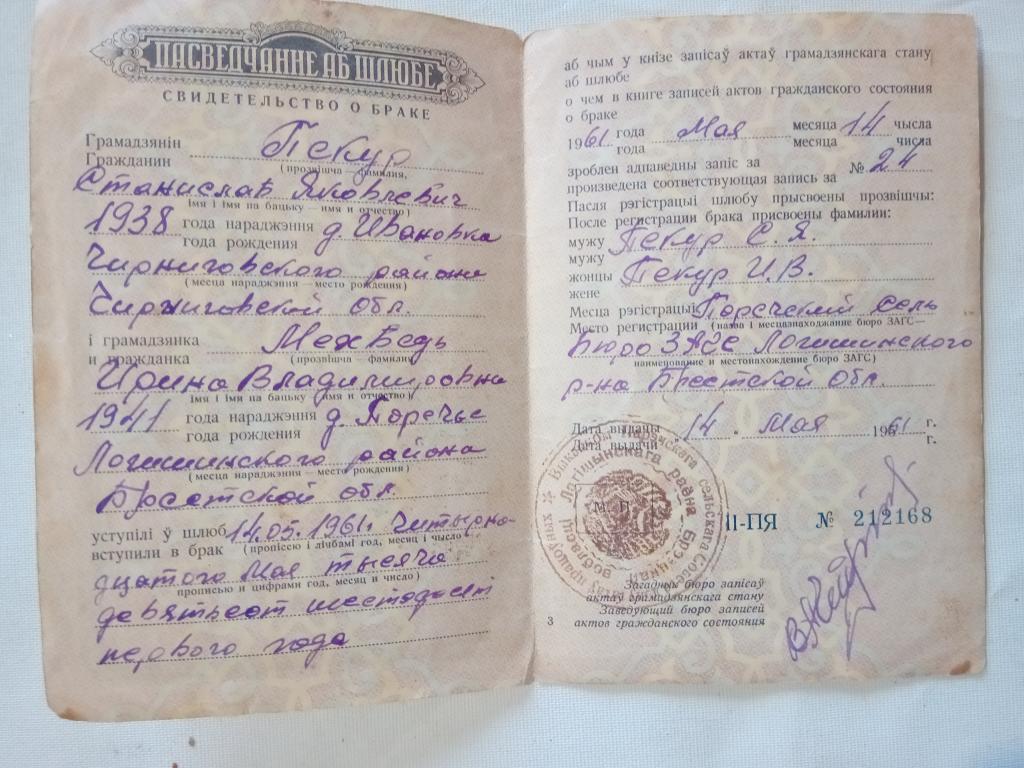 ПАСВЕДЧАННЕ АБ ШЛЮБЕ
СВИДЕТЕЛЬСТВО О БРАКЕ
Грамадзянін
Гражданин
Пекур
(прозвішча — фамилия,
Станислав Яковлевич
імя і імя па бацьку — имя и отчество)
1938 года нараджэння д. Ивановка
года рождения
Чирниговского района
(месца нараджэння — место рождения)
Чирниговской обл.
і грамадзянка
и гражданка
Медведь
(прозвішча — фамилия,
Ирина Владимировна
імя і імя па бацьку — имя и отчество)
1941 года нараджэння д. Поречье
года рождения
Логишинского района
(месца нараджэння — место рождения)
Брестской обл.
уступілі ў шлюб 14.05.1961г. Читырна-
вступили в брак
(пропіссю і лічбамі год, месяц і число
дцатого Мая тысяча
прописью и цифрами год, месяц и число)
девятьсот шестьдесят
первого года
аб чым у кнізе запісаў актаў грамадзянскага стану
аб шлюбе
о чем в книге записей актов гражданского состояния
о браке
1961 года Мая месяца 14 чысла
года месяца числа
зроблен адпаведны запіс за
произведена соответствующая запись за
№ 24
Пасля рэгістрацыі шлюбу прысвоены прозвішчы:
После регистрации брака присвоены фамилии:
мужу Пекур С. Я.
мужу
жонцы Пекур И. В.
жене
Месца рэгістрацыі Поречский сель
Место регистрации (назва і месцазнаходжанне бюро ЗАГС —
бюро ЗАГС Логишинского
наименование и местонахождение бюро ЗАГС)
р-на Брестской обл.
Дата выдачы 14. Мая 1961 г.
Дата выдачи г.
М. П.
II-ПЯ № 212168
Загадчык бюро запісаў
актаў грамадзянскага стану
Заведующий бюро записей
актов гражданского состояния
3